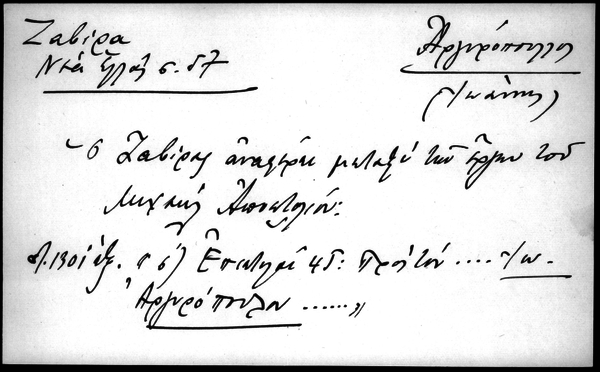 Ζαβίρα
Νέα Ἑλλάς σ. 57
Ἀργυρόπουλος
(Ἰωάννης)
Ὁ Ζαβίρας ἀναφέρει μεταξύ τῶν ἔργων τοῦ
Μιχαήλ Ἀποστολίου:
ἑξ. " 6) Ἐπιστολαί 45: Πρός τόν .... Ἰω.
Ἀργυρόπουλον ......"